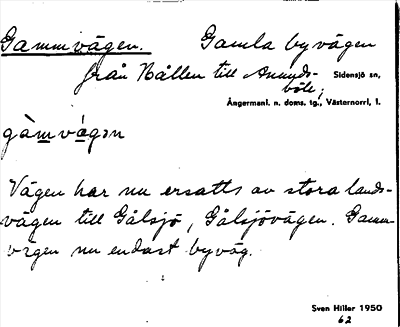 Gammvägen. Gamla byvägen
från Hållen till Anunds-
böle; Sidensjö sn,
Ångermanl. n. doms. tg., Västernorrl. l.
gàmvágən
Vägen har nu ersatts av stora lands-
vägen till Gålsjö, Gålsjövägen. Gamm-
vägen nu endast byväg.
Sven Hiller 1950
62